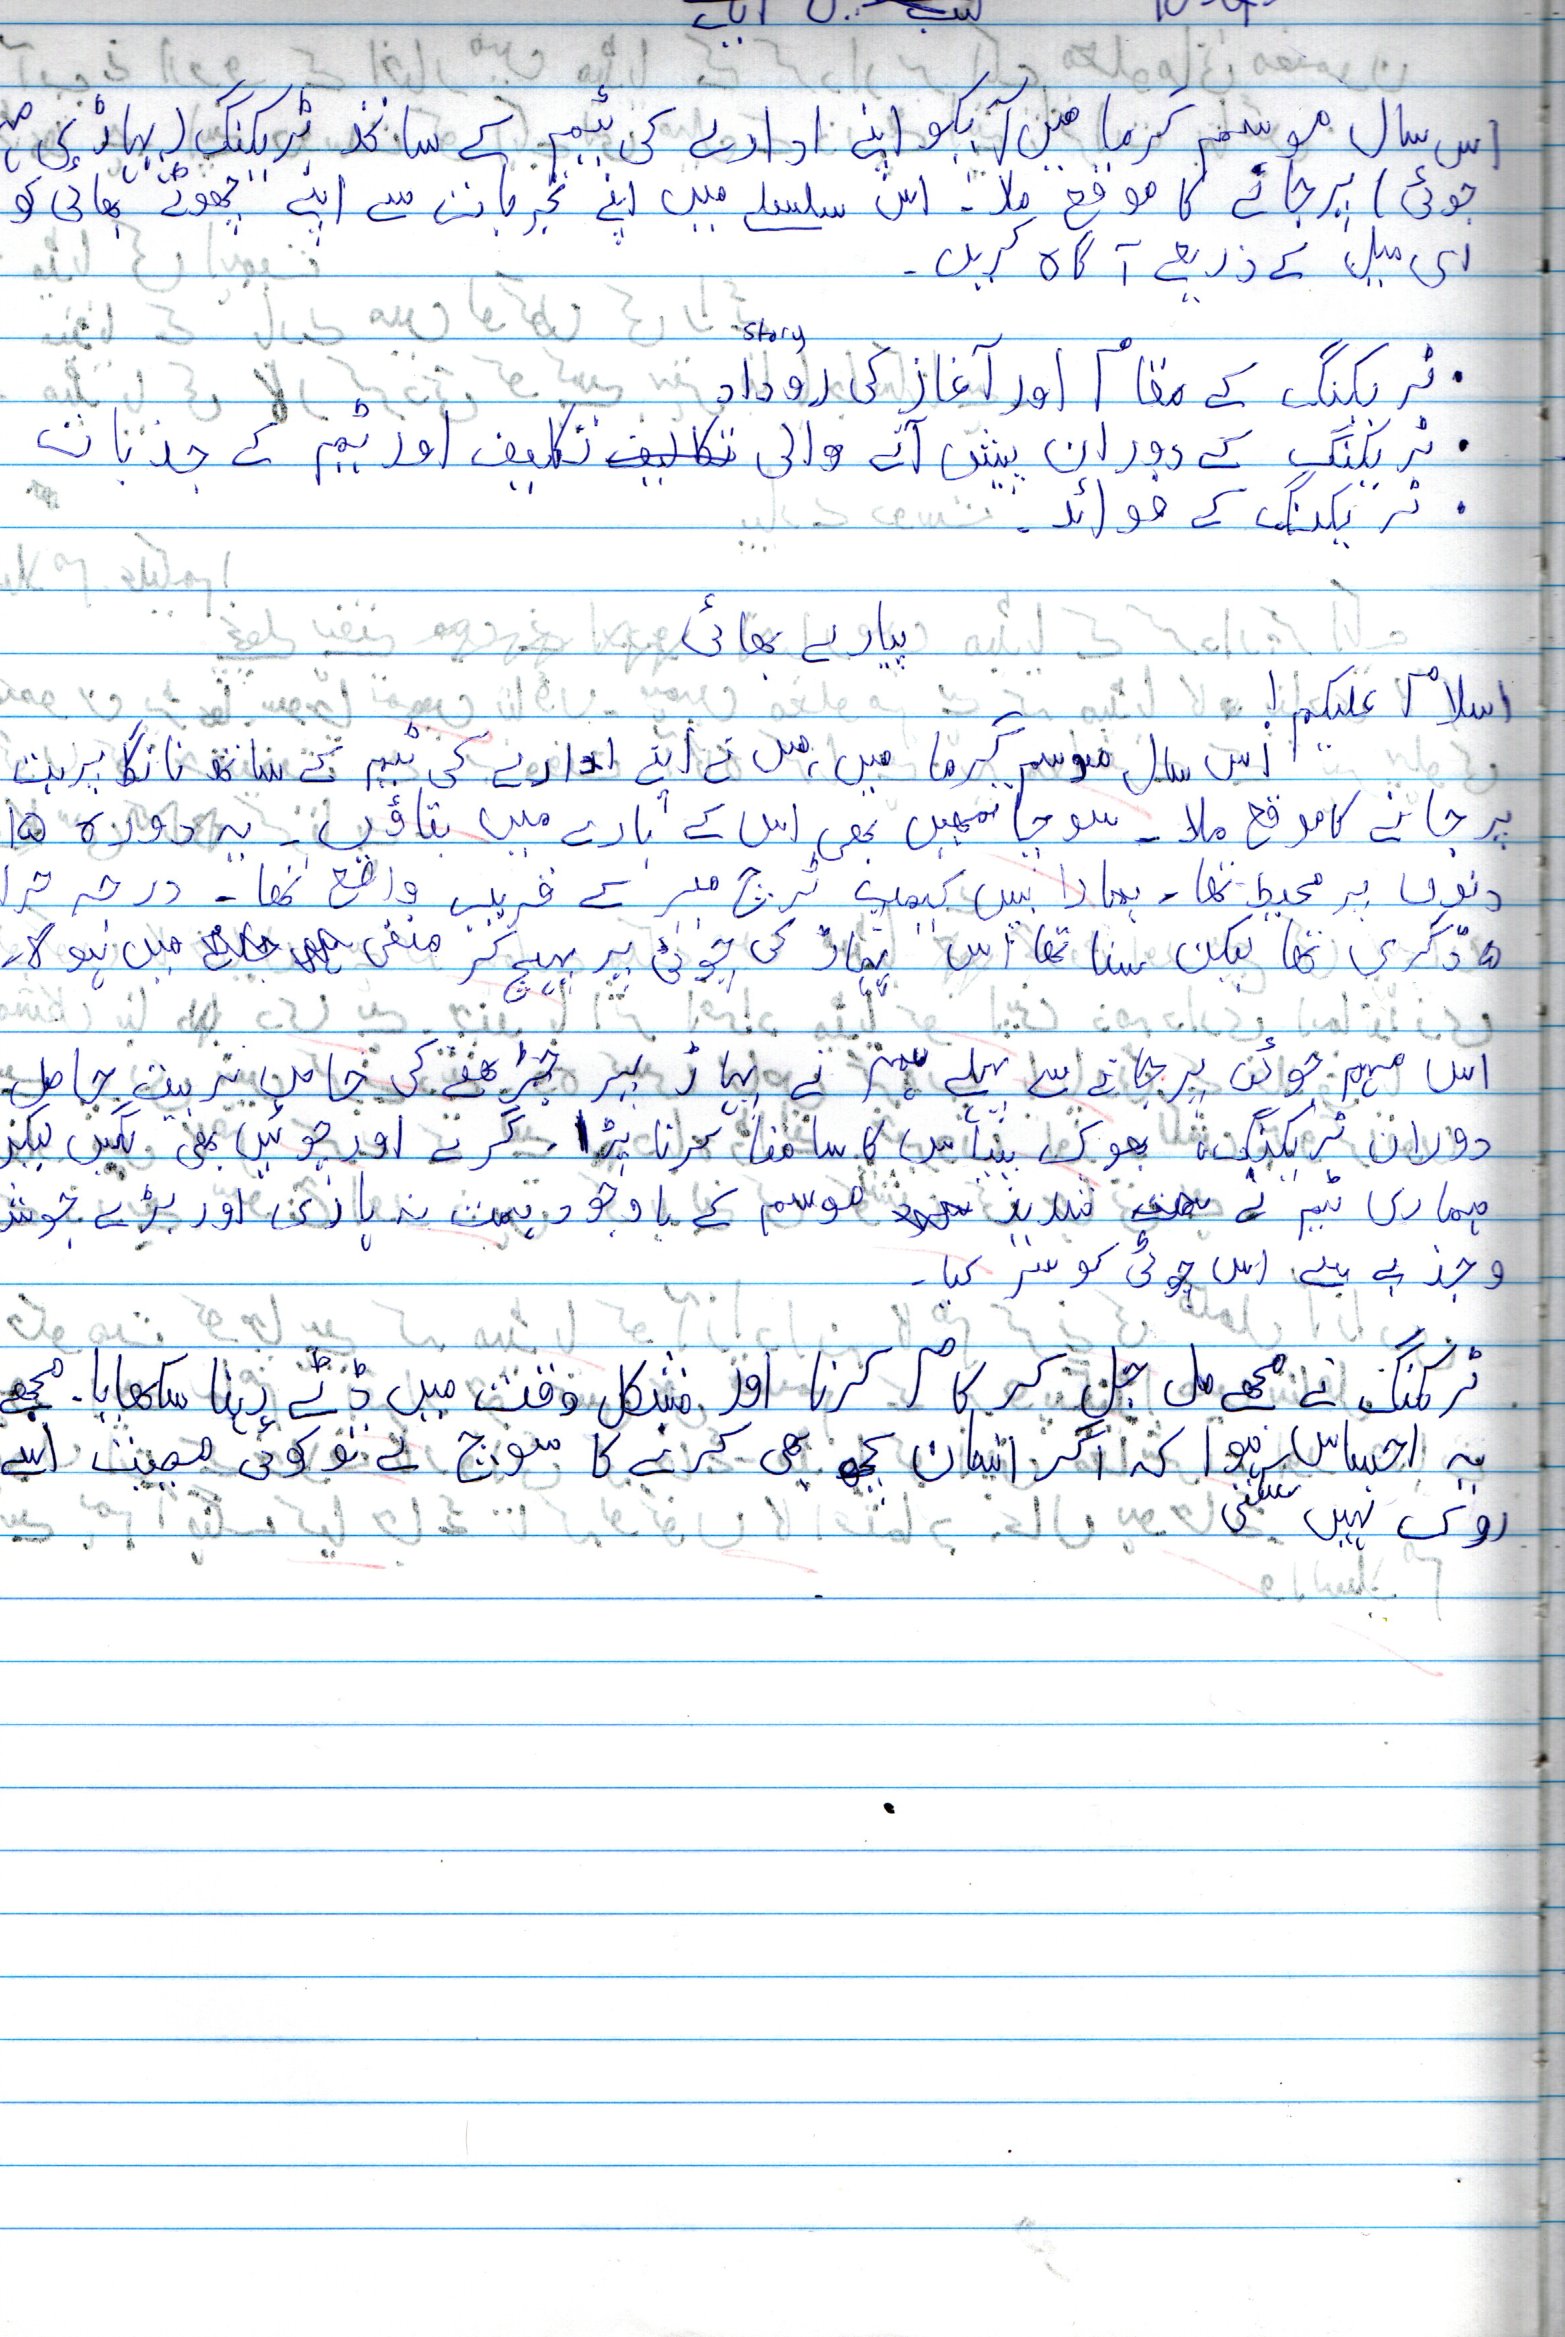 اس سال موسم گرما میں آپکو اپنے ادارے کی ٹیم کے ساتھ ٹریکنگ (پہاڑی
جوئی) پر جانے کا موقع ملا۔ اس سلسلے میں اپنے تجربات سے اپنے چھوٹے بھائی کو
ای میل کے ذریعے آگاہ کریں۔
story
• ٹریکنگ کے مقام اور آغاز کی روداد
• ٹریکنگ کے دوران پیش آنے والی تکالیف تکلیف اور ٹیم کے جذبات
• ٹریکنگ کے فوائد۔
پیارے بھائی
اسلام علیکم!
اس سال موسم گرما میں، میں نے اپنے ادارے کی ٹیم کے ساتھ نانگا پربت
پر جانے کا موقع ملا۔ سوچا تمھیں بھی اس کے بارے میں بتاؤں۔ یہ دورہ ۱۵
دنوں پر محیط تھا۔ ہمارا بیس کیمپ کے قریب واقع تھا۔ درجہ حرا
۵ ڈگری تھا لیکن سنا تھا اس پہاڑ کی چوٹی پر پہنچ کر منفی میں ہو گا۔
اس مہم جوئی پر جانے سے پہلے ہم نے پہاڑ پر چڑھنے کی خاص تربیت حاصل
دوران ٹریکنگ، بھوک پیاس کا سامنا کرنا پڑا۔ گرے اور چوٹیں بھی لگیں لیکن
ہماری ٹیم نے شدید موسم کے باوجود ہمت نہ ہاری اور بڑے جوش
و جذبے سے اس چوٹی کو سر کیا۔
ٹرکنگ نے مجھے مل جل کر کام کرنا اور مشکل وقت میں ڈٹے رہنا سکھایا۔ مجھے
یہ احساس ہوا کہ اگر انسان کچھ بھی کرنے کا سوچ لے تو کوئی مصیبت اسے
روک نہیں سکتی